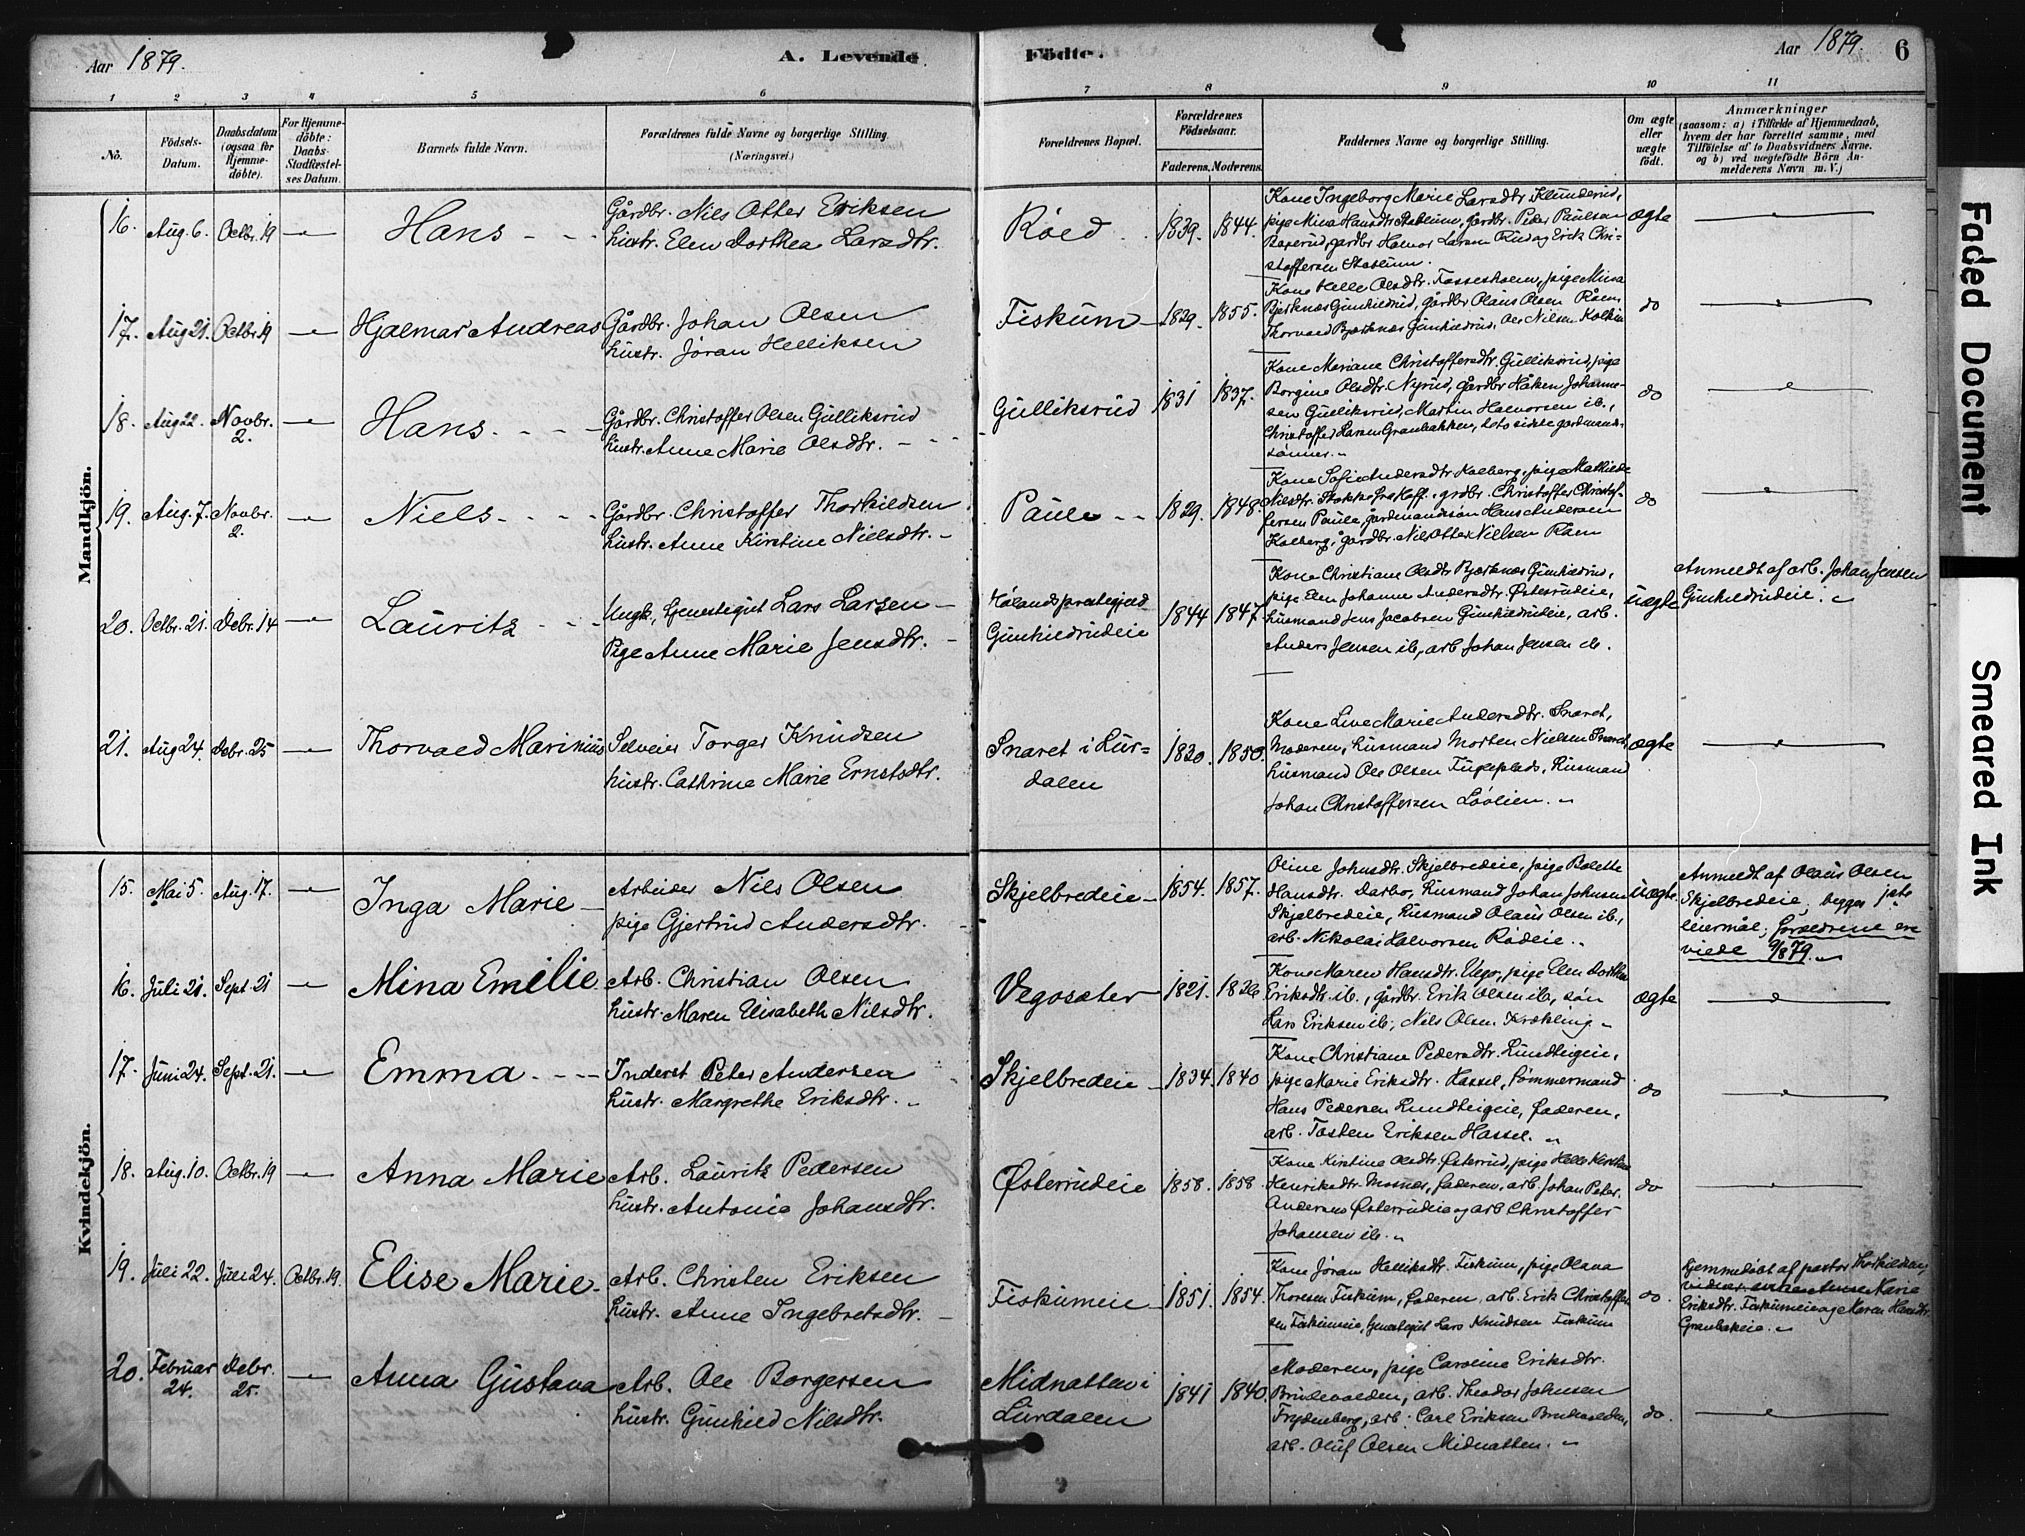 Aar 1879.
A. Levende
Födte.
Aar 1879.
6
1 2 3 4 5 6 7 8 9 10 11
No.
Födsels-
Datum.
Daabsdatum
(ogsaa for
Hjemme-
døbte).
For Hjemme-
döbte:
Daabs-
Stadfæstel-
ses Datum.
Barnets fulde Navn.
Forældrenes fulde Navne og borgerlige Stilling.
(Næringsvei.)
Forældrenes Bopæl.
Forældrenes
Födselsaar.
Faderens. Moderens.
Faddernes Navne og borgerlige Stilling.
Om ægte
eller
uægte
födt.
Anmærkninger
(saasom: a) i Tilfælde af Hjemmedaab,
hvem der har forrettet samme, med
Tilföielse af to Daabsvidners Navne.
og b) ved uægtefödte Börn An-
melderens Navn m. V.)
Mandkjön.
16. Aug. 6. Octbr. 19 Hans
Gårdbr. Nils Otter Eriksen
hustr. Elen Dorthea Larsdtr.
Röed 1839. 1844.
Kone Ingeborg Marie Larsdtr. Klunderud,
pige Mina Hansdtr. Stablum, gårdbr. Peder Paulsen
gårdbr. Halvor Larsen Rud og Erik Chri-
stoffersen Stablum.
ægte
17. Aug 21. Octbr. 19 Hjalmar Andreas
Gårdbr. Johan Olsen
hustr. Jøran Helliksen
Fiskum 1829. 1855.
Kone Helle Olsdtr. Fossesholm, pige Mina
Bjerknæs Gunhildrud, gårdbr Olaus Olsen Råen,
Thorvald Bjerknæs Gunhildrud, Ole Nilsen
do
18. Aug 22. Novbr. 2. Hans
Gårdbr. Christoffer Olsen Gulliksrud
hustr. Anne Marie Olsdtr.
Gulliksrud 1831 1837.
Kone Mariane Christoffersdtr. Gulliksrud, pige
Borgine Olsdtr. Nyrud, gårdbr Håken Johanne-
sen Gulliksrud, Martin Halvorsen ib.,
Christoffer Larsen Granbakken, de to sidste gårdmands-
sönner.
do
19. Aug. 7. Novbr. 2. Niels
Gårdbr. Christoffer Thorkildsen
hustr. Anne Kirstine Nielsdtr.
Paule 1829. 1848.
Kone Sofie Andersdtr. Kolberg, pige Mathilde
Nilsdtr. Stokke, grdbr. Christoffer Christof-
fersen Paule, gårdmandssön Hans Andersen
Kolberg, gårdbr. Nils Otter Nielsen Råen
do
20. Octbr. 21. Debr. 14 Lauritz
Ungk., Lars Larsen
Pige Anne Marie Jensdtr.
Hølands præstegjeld
Gunhildrudeie 1844 1847
Kone Christiane Olsdtr. Bjerknæs Gunhildrud,
pige Elen Johanne Andersdtr. Østerudeie,
husmand Jens Jacobsen Gunhildrudeie, arb.
Anders Jensen ib, arb Johan Jensen ib.
uægte
Anmeldt af arb. Johan Jensen
Gunhildrudeie.
21. Aug 24. Debr. 25 Thorvald Marinius
Selveier Torger Knudsen
hustr. Cathrine Marie Ernstsdtr.
Snaret i Lur-
dalen 1830. 1850.
Kone Live Marie Andersdtr. Snaret,
Moderen, husmand Morten Nielsen Snaret,
husmand Ole Olsen Fugleplads, husmand
Johan Christoffersen Løvlien.
ægte
Kvindekjön.
15. Mai 5. Aug. 17. Inga Marie
Arbeider Nils Olsen
pige Gjertrud Andersdtr.
Skjelbredeie 1854. 1857.
Oline Johnsdtr. Skjelbredeie, pige Bolette
Hansdtr. Darbo, husmand Johan Johnsen
Skjelbredeie, husmand Olaus Olsen ib.,
arb. Nikolai Halvorsen Rödeie.
uægte
Anmeldt af Olaus Olsen
Skjelbredeie, begges 1ste
leiermål; forældrene ere
viede 9/8 79.
16. Juli 21. Sept. 21 Mina Emilie
Arb. Christian Olsen
hustr. Maren Elisabeth Nilsdtr.
Vegosæter 1821. 1826
Kone Maren Hansdtr. Vego, pige Elen Dorthea
Eriksdtr. ib., gårdbr. Erik Olsen ib, sön
Lars Eriksen ib, Nils Olsen Krækling.
ægte
17. Juni 24. Sept. 21. Emma
Inderst Peter Andersen
hustr. Margrethe Eriksdtr.
Skjelbredeie 1834. 1840
Kone Christiane Pedersdtr. Lundteigeie,
pige Marie Eriksdtr. Hassel, Tömmermand
Hans Pedersen Lundteigeie, faderen,
arb. Tosten Eriksen Hassel.
do
18. Aug. 10. Octbr. 19 Anna Marie
Arb. Lauritz Pedersen
hustr. Antonie Johansdtr.
Østerrudeie 1858. 1858.
Kone Kirstine Olsdtr. Østerrud, pige Helle Kirstine
Henriksdtr. Mosnes, faderen, arb. Johan Peter
Andersen Østerrudeie og arb Christoffer
Johansen ib.
do
19. Juli 22. Juli 24. Octbr. 19. Elise Marie
Arb. Christen Eriksen
hustr. Anne Ingebretsdtr.
Fiskumeie 1851. 1854.
Kone Jøran Helliksdtr. Fiskum, pige Olava
Thoresen Fiskum, faderen, arb. Erik Christoffer-
sen Fiskumeie, Lars Knudsen Fiskum
do.
hjemmedøbt af pastor Thorkildsen,
Anne Marie
Eriksdtr. Fiskumeie og Maren Hansdtr.
Granbakeie.
20. Februar 24. Debr. 25. Anna Gustava
Arb. Ole Borgersen
hustr. Gunhild Nilsdtr.
Midnatten i
Lurdalen 1841 1840.
Moderen, pige Caroline Eriksdtr.
Brudevolden, arb. Theodor Johnsen
Frydenberg, arb. Carl Eriksen Brudevolden,
arb. Oluf Olsen Midnatten.
do.
Faded Document
Smeared Ink